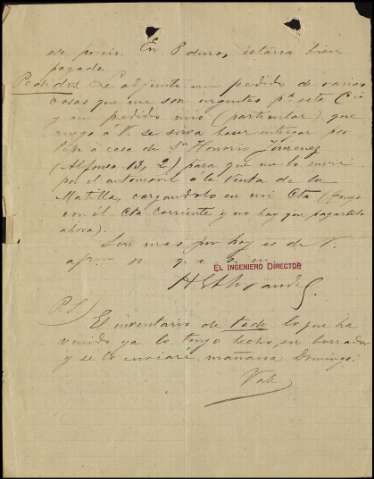 de precio. En 8 duros estaria bien
pagado
Pedidos. Le adjunto un pedido de varias
cosas que me son urgentes pª esta Cª
y un pedido mio (particular) que
ruego á V. se sirva hacer entregar
en á casa de Dn Honorio Jimenez
(Alfonso 12, 2) para que me lo envie
por el automovil á la Venta de la
Matilla, cargandolo en mi Cta (tengo
con él Cta corriente y no hay que pagarselo
ahora).
Sin mas por hoy es de V.
afmo s s q b s m
EL INGENIERO DIRECTOR
P.D.
El inventario de todo lo que ha
venido ya lo tengo hecho en borrador
y se lo enviaré mañana Domingo.
Vale